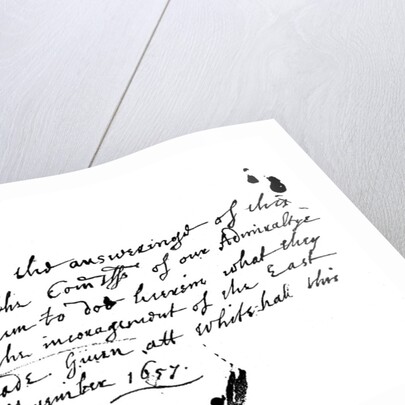 the answeringe of this
the Comrs of our Admiraltye
to doe herein what they
the incoragement of the East
ade. Given att Whitehall this
ember 1657.